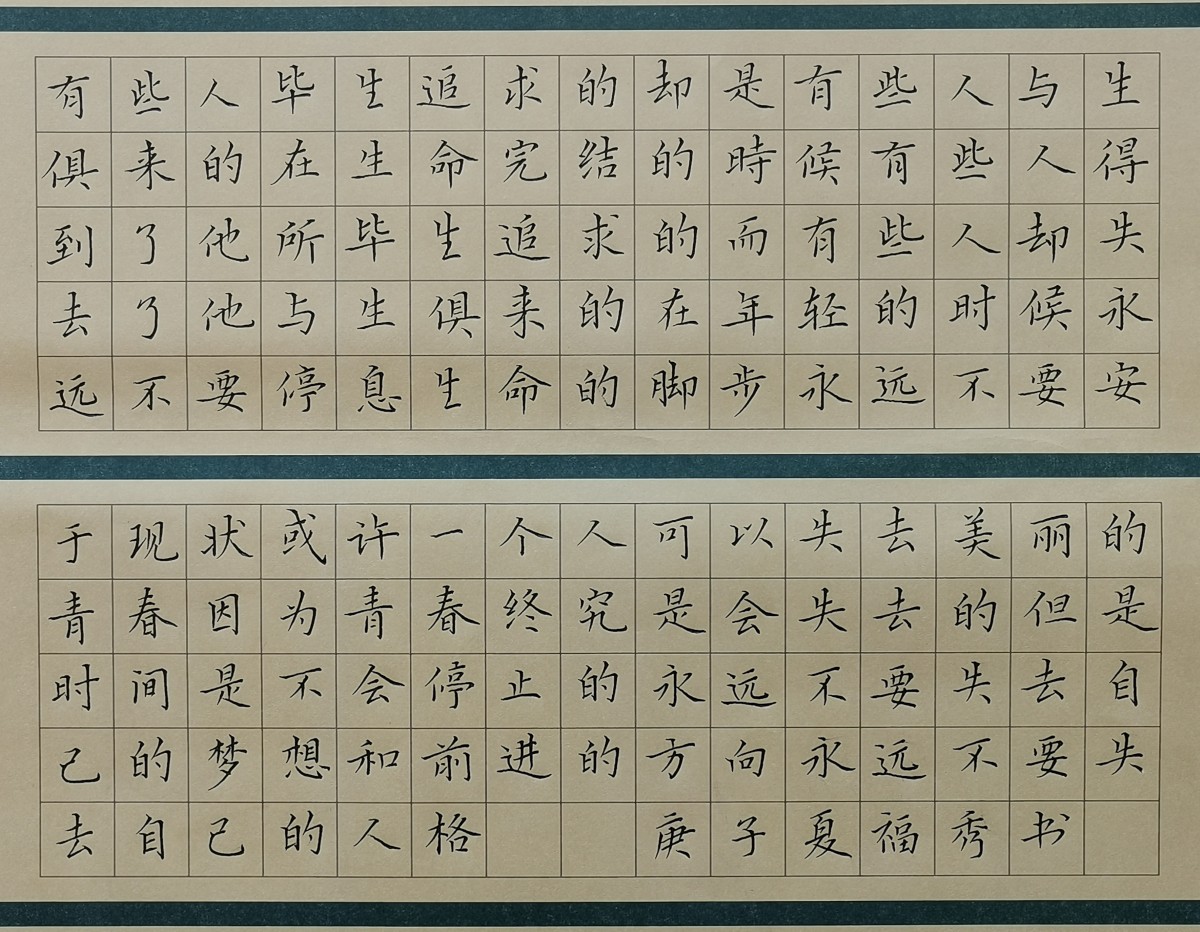 有些人毕生追求的却是有些人与生
俱来的在生命完结的時候有些人得
到了他所毕生追求的而有些人却失
去了他与生俱来的在年轻的时候永
远不要停息生命的脚步永远不要安
于现状或许一个人可以失去美丽的
青春因为青春终究是会失去的但是
时间是不会停止的永远不要失去自
己的梦想和前进的方向永远不要失
去自己的人格 庚子夏福秀书